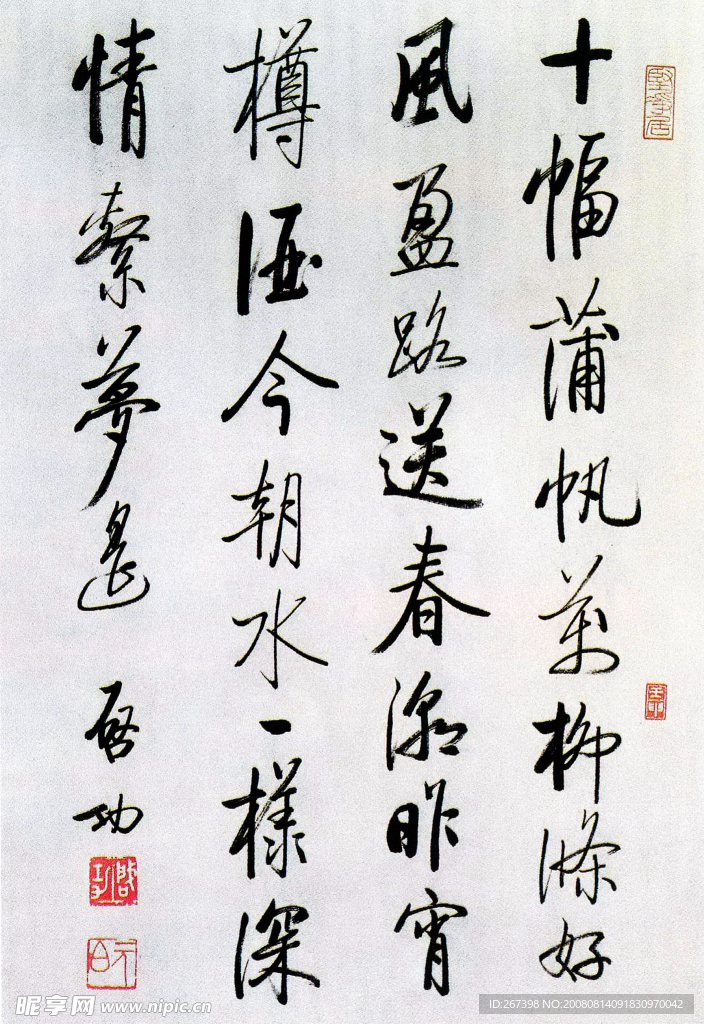 堅淨居
十幅蒲帆萬柳條好
風盈路送春潮昨宵
樽酒今朝水一樣深
情繫夢遙
启功
启功
元白
昵享网 www.nipic.cn
ID:267398 NO:20080814091830970042